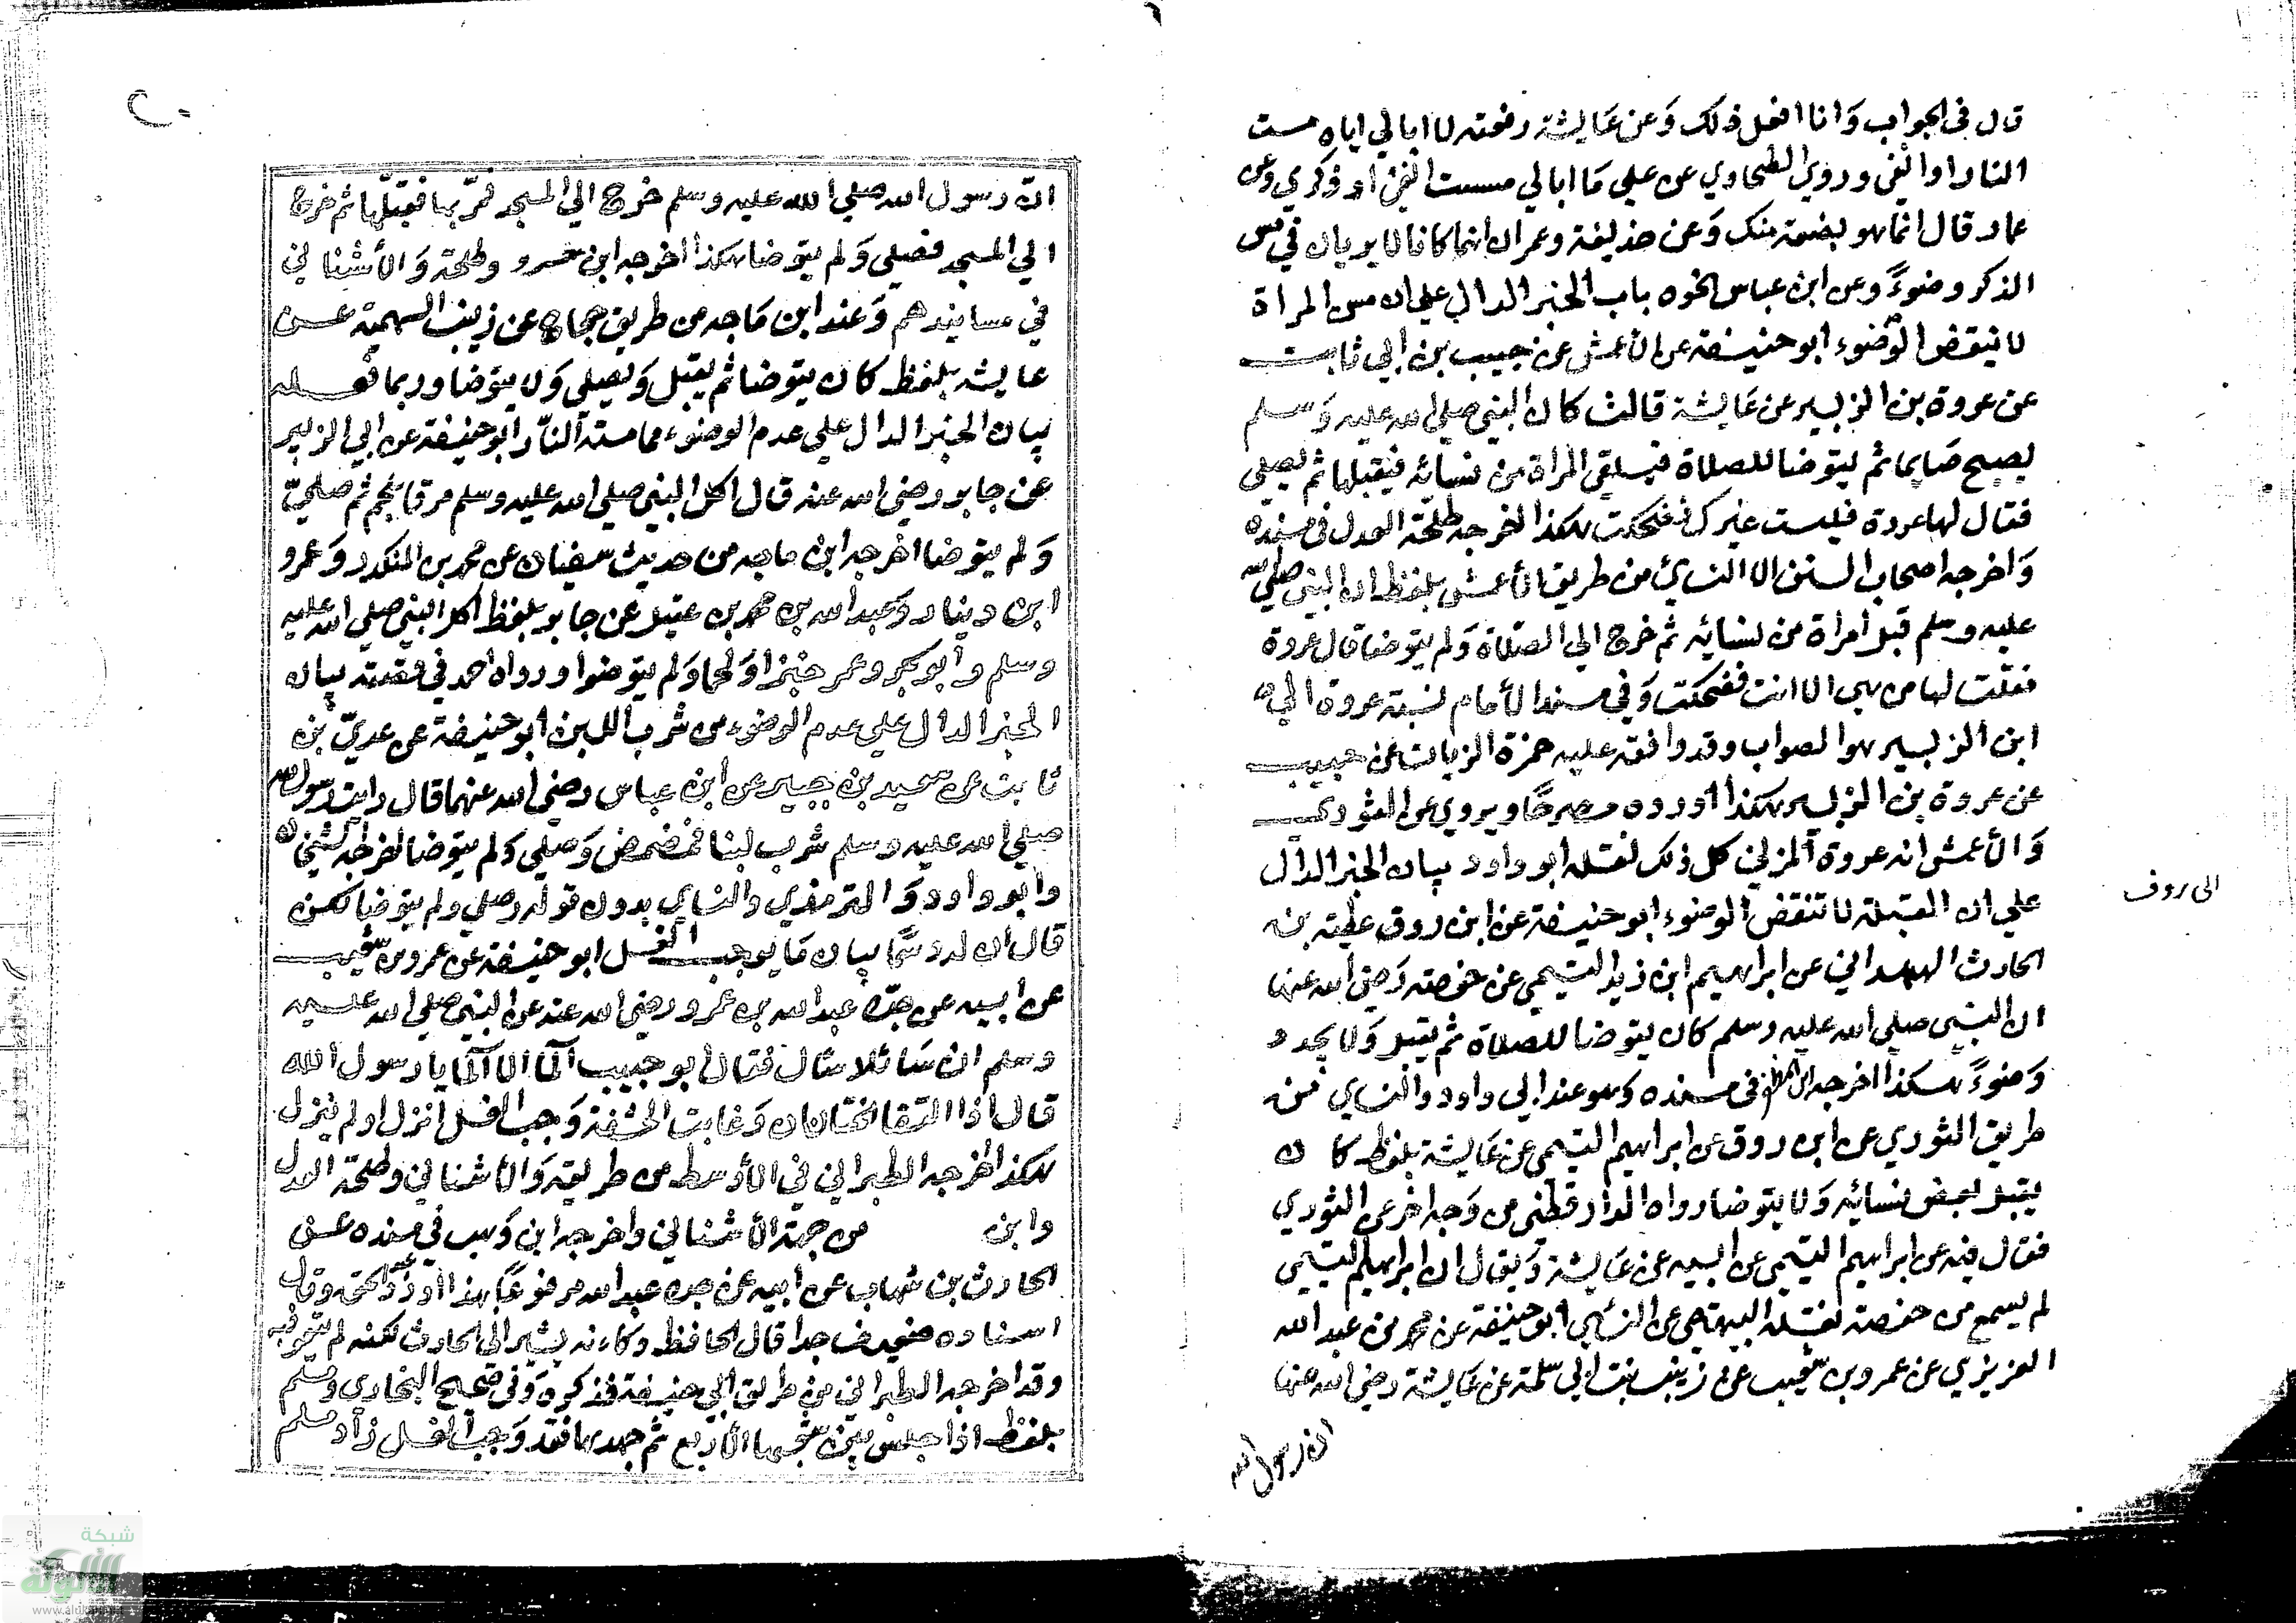 قال في الجواب وَانا افعل ذلك وَعن عَايشة رفعته لا ابالي اياه مست
النار اوانفي وروي الطحاوي عن علي مَا ابالي مسست انفي او ذكري وعن
عمار قال انما هو بضعة منك وَعن حذيفة وعمران انهما كانا لا يريان في مس
الذكر وضوءً وعن ابن عباس نحوه باب الخبر الدال علي ان مس المراة
لا ينقض الوضوء ابو حنيفة عن الأعمش عن حبيب بن ابي ثابت
عن عروة بن الزبير عن عَايشة قالت كان النبي صلي الله عليه وَسلم
يصبح صَايما ثم يتوضا للصلاة فيلقي المراة من نسائه فيقبلها ثم يصلي
فقال لها عروة فليست غيرك فضحكت هكذا اخرجه طلحة العدل في مسنده
وَاخرجه اصحاب السنن الا النسائي من طريق الأعمش بلفظ ان النبي صلي الله
عليه وسلم قبل امراة من نسائه ثم خرج الي الصلاة وَلم يتوضا قال عروة
فقلت لها من هي الا انت فضحكت وَفي مسند الأمام نسبة عروة الي
ابن الزبير هو الصواب وقد وافقه عليه حمزة الزيات عن حبيب
عن عروة بن الزبير هكذا اورده مصرحًا ويروي عن الثوري
وَالأعمش انه عروة المزني كل ذلك نقله ابو داود بيان الخبر الدال
علي ان القبلة لا تنقض الوضوء ابو حنيفة عن ابن روق عطية بن
الي روف
الحارث الهمداني عن ابراهيم ابن زيد التيمي عن حفصة رَضي الله عنها
ان النبي صلي الله عليه وسلم كان يتوضا للصلاة ثم يقبل وَلا يجدد
وَضوءً هكذا اخرجه ابن المظفر في مسنده وَهو عند ابي داود والنساي من
طريق الثوري عن ابن روق عن ابراهيم التيمي عن عَايشة بلفظ كان
يقبل بعض نسائه وَلا يتوضا رواه الدارقطني من وَجه اخر عن الثوري
فقال فيه عن ابراهيم التيمي عن ابيه عن عَايشة وَيقال ان ابراهيم التيمي
لم يسمع من حفصة نقله البيهقي عن النسائي ابو حنيفة عن محمد بن عبد الله
العزيزي عن عمرو بن شعيب عن زينب بنت ابي سلمة عن عَايشة رضي الله عنها
ان رسول الله
انّ رسول الله صلي الله عليه وسلم خرج الي المسجد فمرّ بها فقبّلها ثم خرج
الي المسجد فصلي وَلم يتوضا هكذا اخرجه ابن خسرو وطلحة وَالأشناني
في مسانيدهم وَعند ابن مَاجه من طريق حجاج عن زينب السهمية عن
عايشه بلفظ كان يتوضا ثم يقبل وَيصلي وَلا يتوضا وربما فعله
بيان الخبر الدال علي عدم الوضوء مما مسته النّار ابو حنيفة عن ابي الزبير
عن جابر رضي الله عنه قال اكل النبي صلي الله عليه وسلم مرقا بلحم ثم صليّ
وَلم يتوضا اخرجه ابن ماجه من حديث سفيان عن محمد بن المنكدر وَعمرو
ابن دينار وَعبد الله بن محمد بن عقيل عن جابر بلفظ اكل النبي صلي الله عليه
وسلم وابو بكر وعمر خبزا وَلحما وَلم يتوضوا ورواه احمد في قصة بيان
الخبر الدال علي عدم الوضوء من شرب اللبن ابو حنيفة عن عديّ بن
ثابت عن سعيد بن جبير عن ابن عباس رضي الله عنهما قال رايت رسول الله
صلي الله عليه وسلم شرب لبنا فمضمض وَصلي وَلم يتوضا اخرجه الشيخان
وابو داود وَالترمذي والنساي بدون قوله وصلي ولم يتوضا لكن
قال ان له دسمًا بيان مَا يوجب الغسل ابو حنيفة عن عمرو بن شعيب
عن ابيه عن جدّه عبد الله بن عمرو رضي الله عنه عن النبي صلي الله عليه
وسلم ان سَائلا سال فقال ابو حبيب المَا الا المَا يا رسول الله
قال اذا التقا الختانان وَغابت الحشفة وَجب الغسل انزل او لم ينزل
هكذا اخرجه الطبراني في الأوسط من طريقه وَالأشناني وطلحة العدل
وابن من جهة الأشناني واخرجه ابن وَهب في مسنده عن
الحارث بن شهاب عن ابيه عن جده عبد الله مرفوعًا بهذا اورده عبد الحق وقال
اسناده ضعيف جدا قال الحافظ وكانه يشير الي الحارث لكنه لم ينفرد به
وقد اخرجه الطبراني من طريق ابي حنيفة فذكره وَفي صحيح البخاري ومسلم
بلفظ اذا جلس بين شعبها الأربع ثم جهدها فقد وَجب الغسل زاد مسلم
شبكة
الألوكة
www.alukah.net